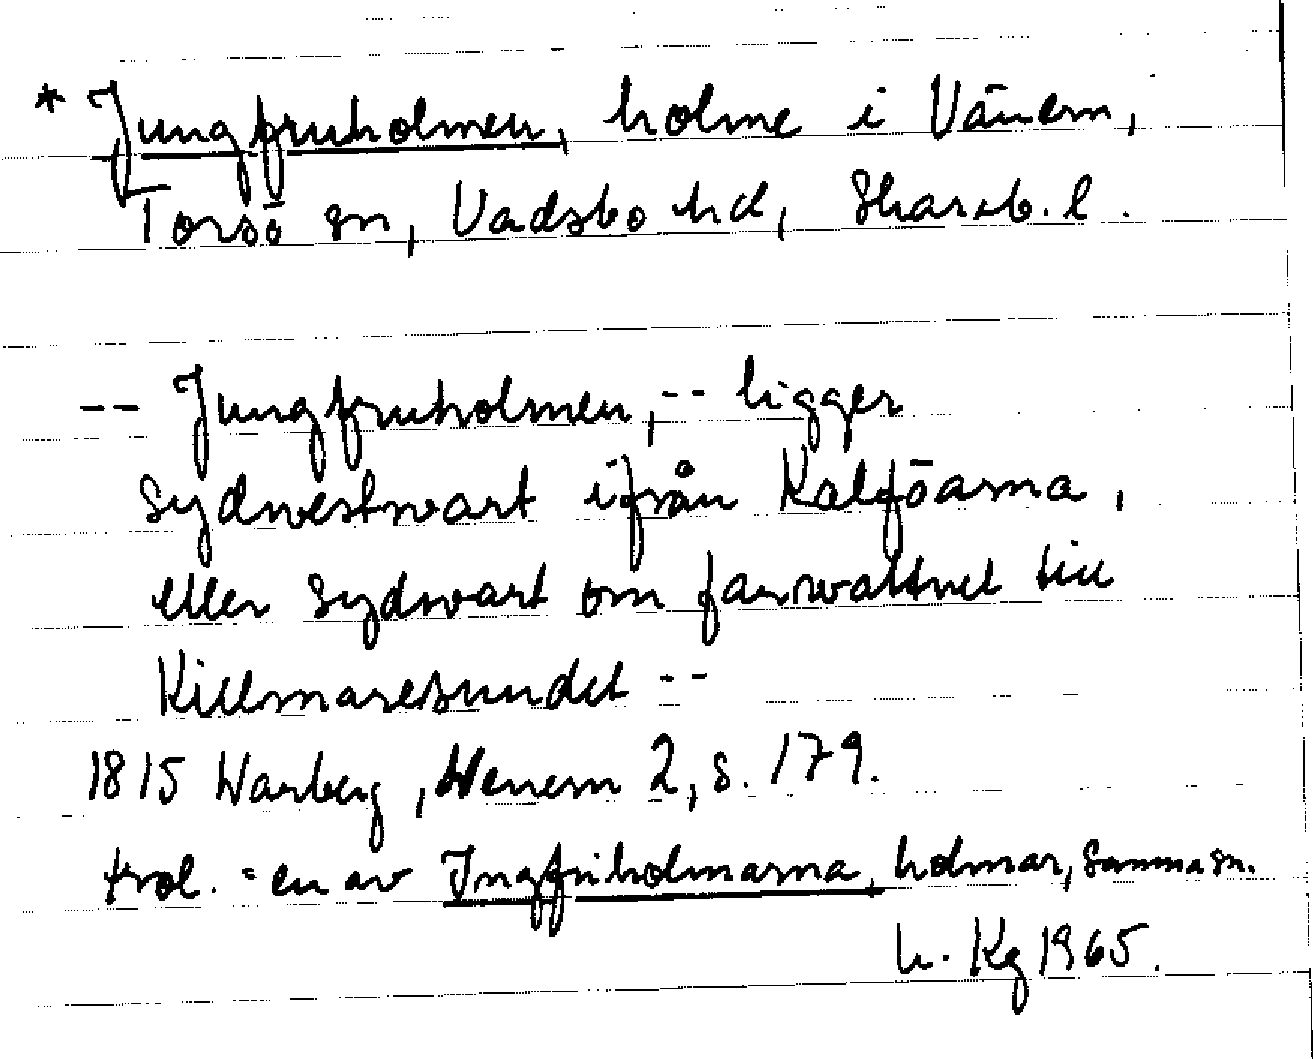 * Jungfruholmen, holme i Vänern,
Torsö sn, Vadsbo hd, Skarab. l.
-- Jungfruholmen, -- ligger
Sydwestwart ifrån Kalföarna,
eller Sydwart om farwattnet till
Killmaresundet --
1815 Warberg, Wenern 2, s. 179.
trol. = en av Ingfriholmarna, holmar, samma sn.
h. Kg 1965.